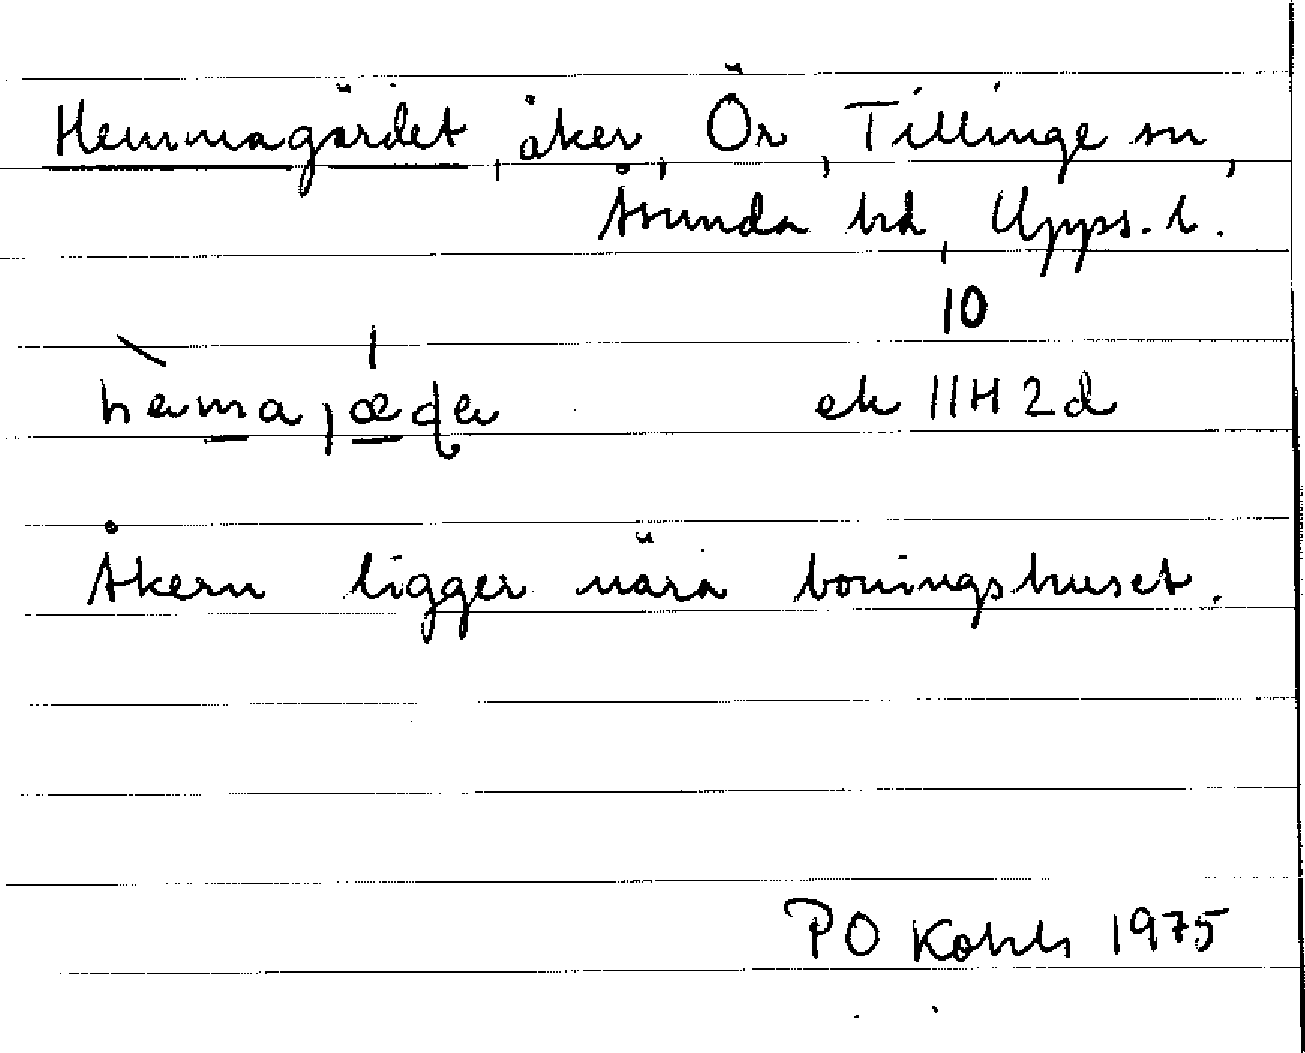 Hemmagärdet, åker, Ör, Tillinge sn,
Åsunda hd, Upps. l.
10
hema, æɖe
ek 11H 2d
Åkern ligger nära boningshuset.
P O Kohls 1975